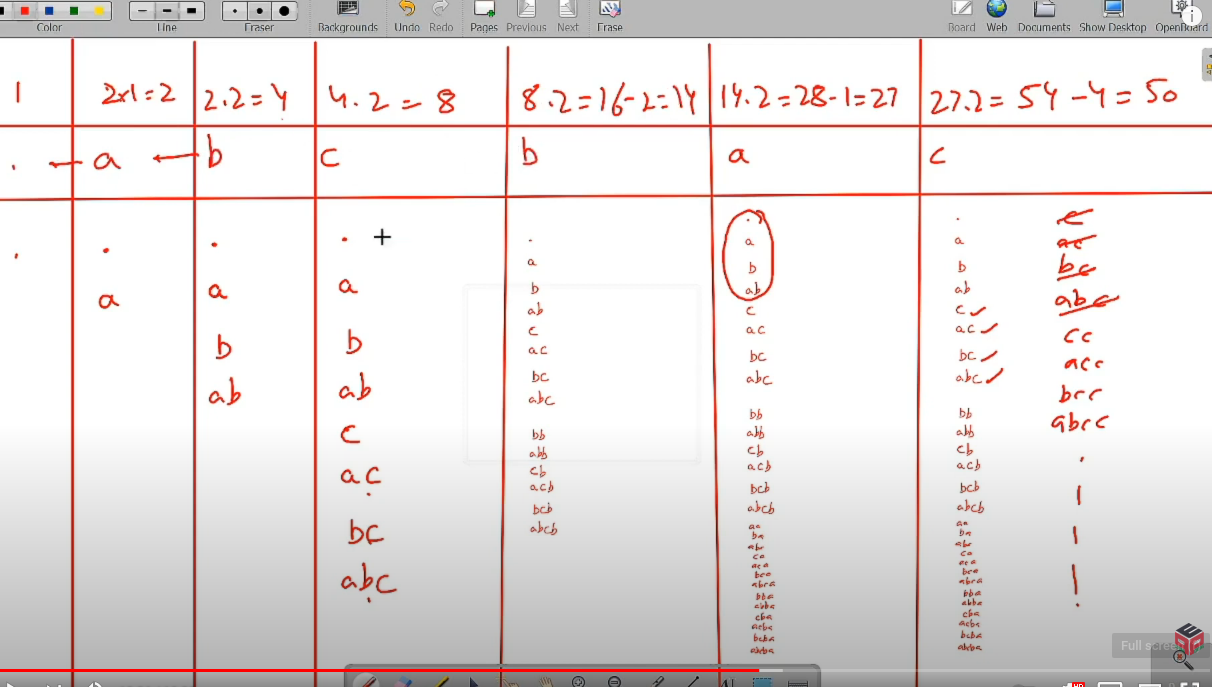 Color
Line
Eraser
Backgrounds
Undo
Redo
Pages
Previous
Next
Erase
Board
Web
Documents
Show Desktop
OpenBoard
1
2x1=2
2.2=4
4.2=8
8.2=16-2=14
14.2=28-1=27
27.2=54-4=50
.
a
b
c
b
a
c
.
.
a
.
a
b
ab
.
a
b
ab
c
ac
bc
abc
.
a
b
ab
c
ac
bc
abc
bb
abb
cb
acb
bcb
abcb
.
a
b
ab
c
ac
bc
abc
bb
abb
cb
acb
bcb
abcb
aa
ba
aba
ca
aca
bca
abca
bba
abba
cba
acba
bcba
abcba
.
a
b
ab
c
ac
bc
abc
bb
abb
cb
acb
bcb
abcb
aa
ba
aba
ca
aca
bca
abca
bba
abba
cba
acba
bcba
abcba
c
ac
bc
abc
cc
acc
bcc
abcc
Full screen
HD